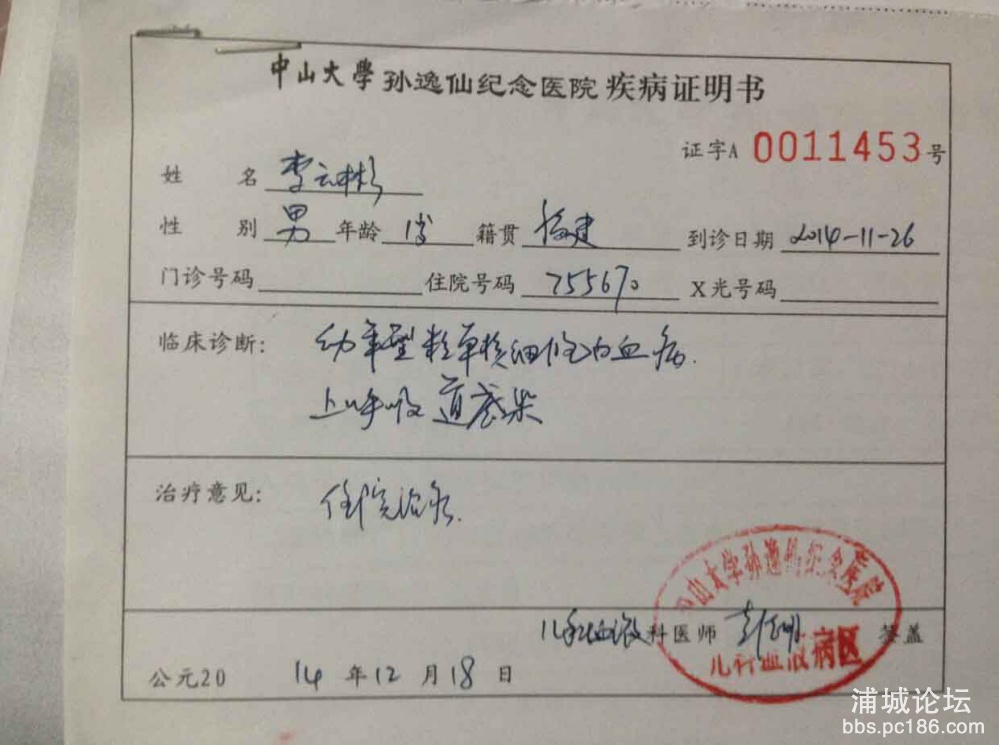 中山大學孙逸仙纪念医院疾病证明书
证字A 0011453号
姓 名 李云彬
性 别 男 年龄 1岁 籍贯 福建 到诊日期 2014-11-26
门诊号码 住院号码 755670 X光号码
临床诊断: 幼年型粒单核细胞白血病.
上呼吸道感染
治疗意见: 住院治疗.
中山大学孙逸仙纪念医院
儿科血液科医师 签盖
儿科血液病区
公元2014年12月18日
浦城论坛
bbs.pc186.com